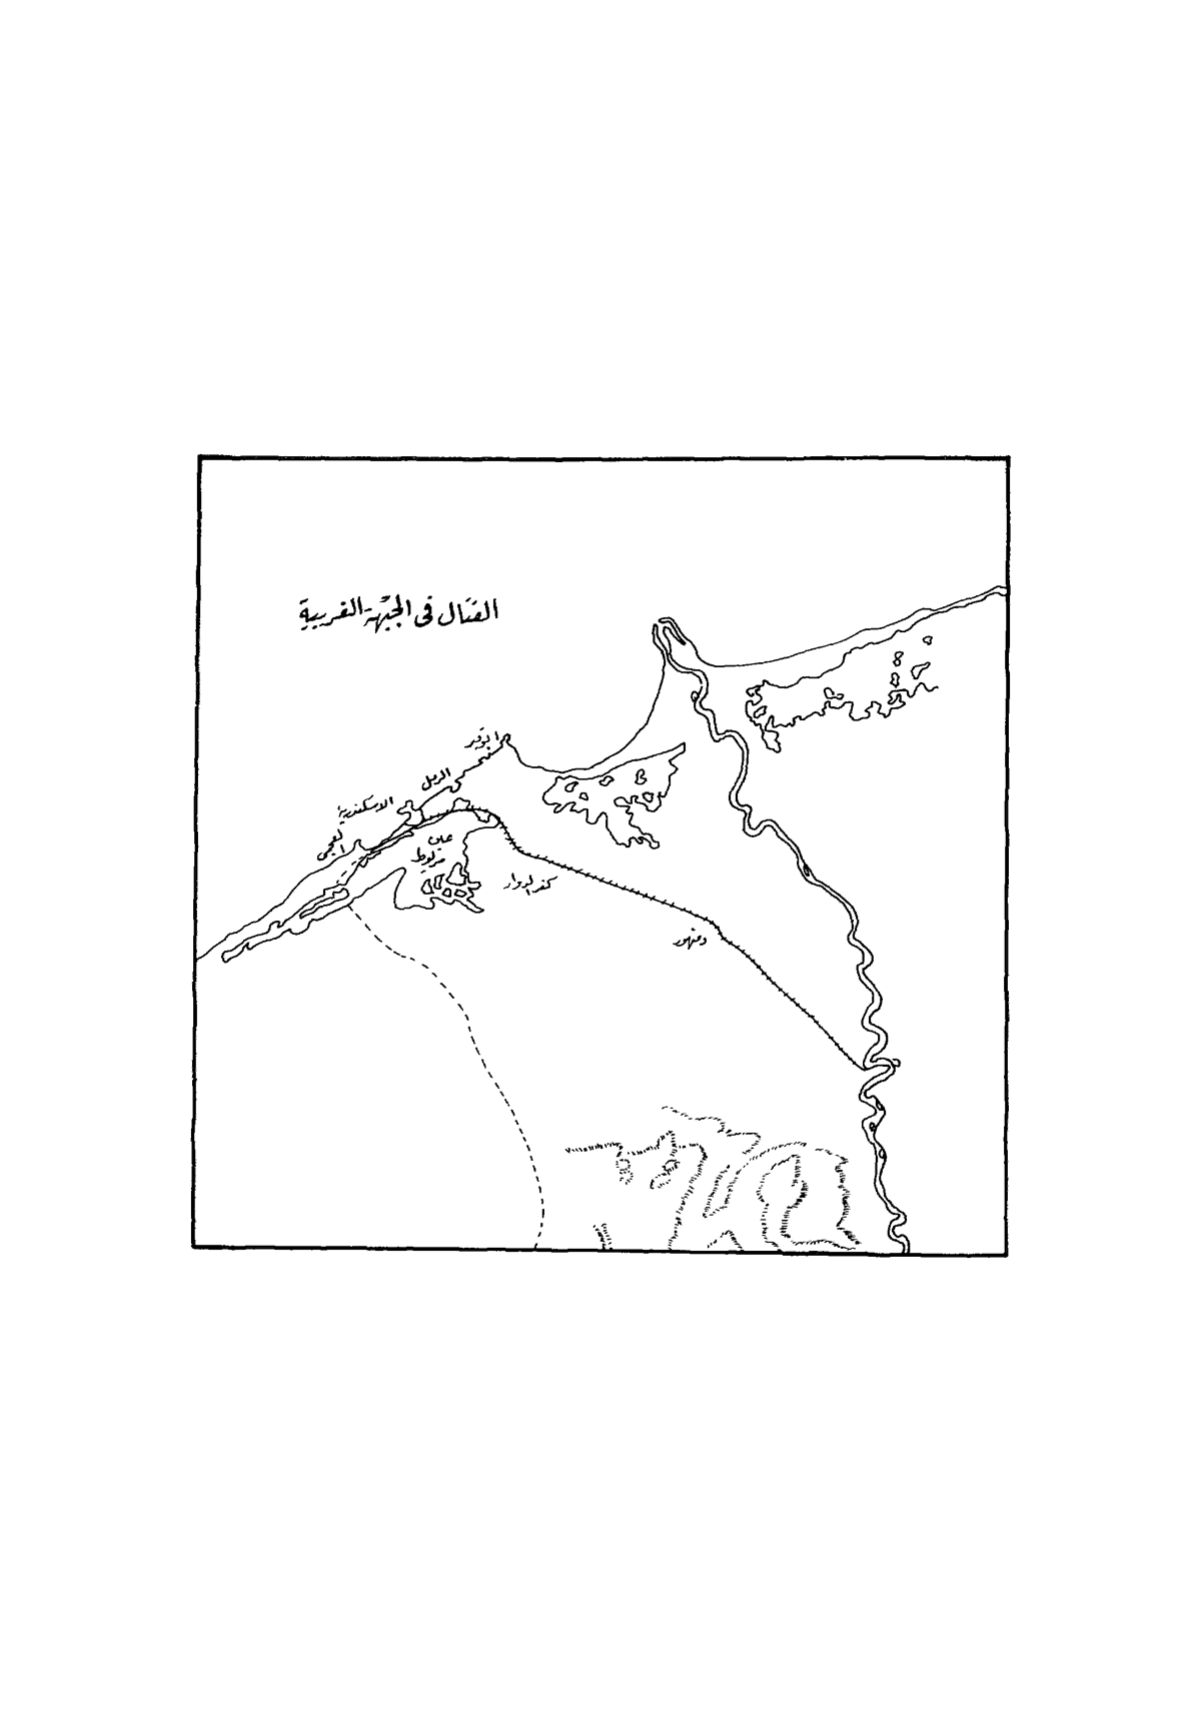 القتال فى الجبهة الغربية
ابوقير
الرمل
الاسكندرية
العجمى
عين
مريوط
كفر الدوار
دمنهور